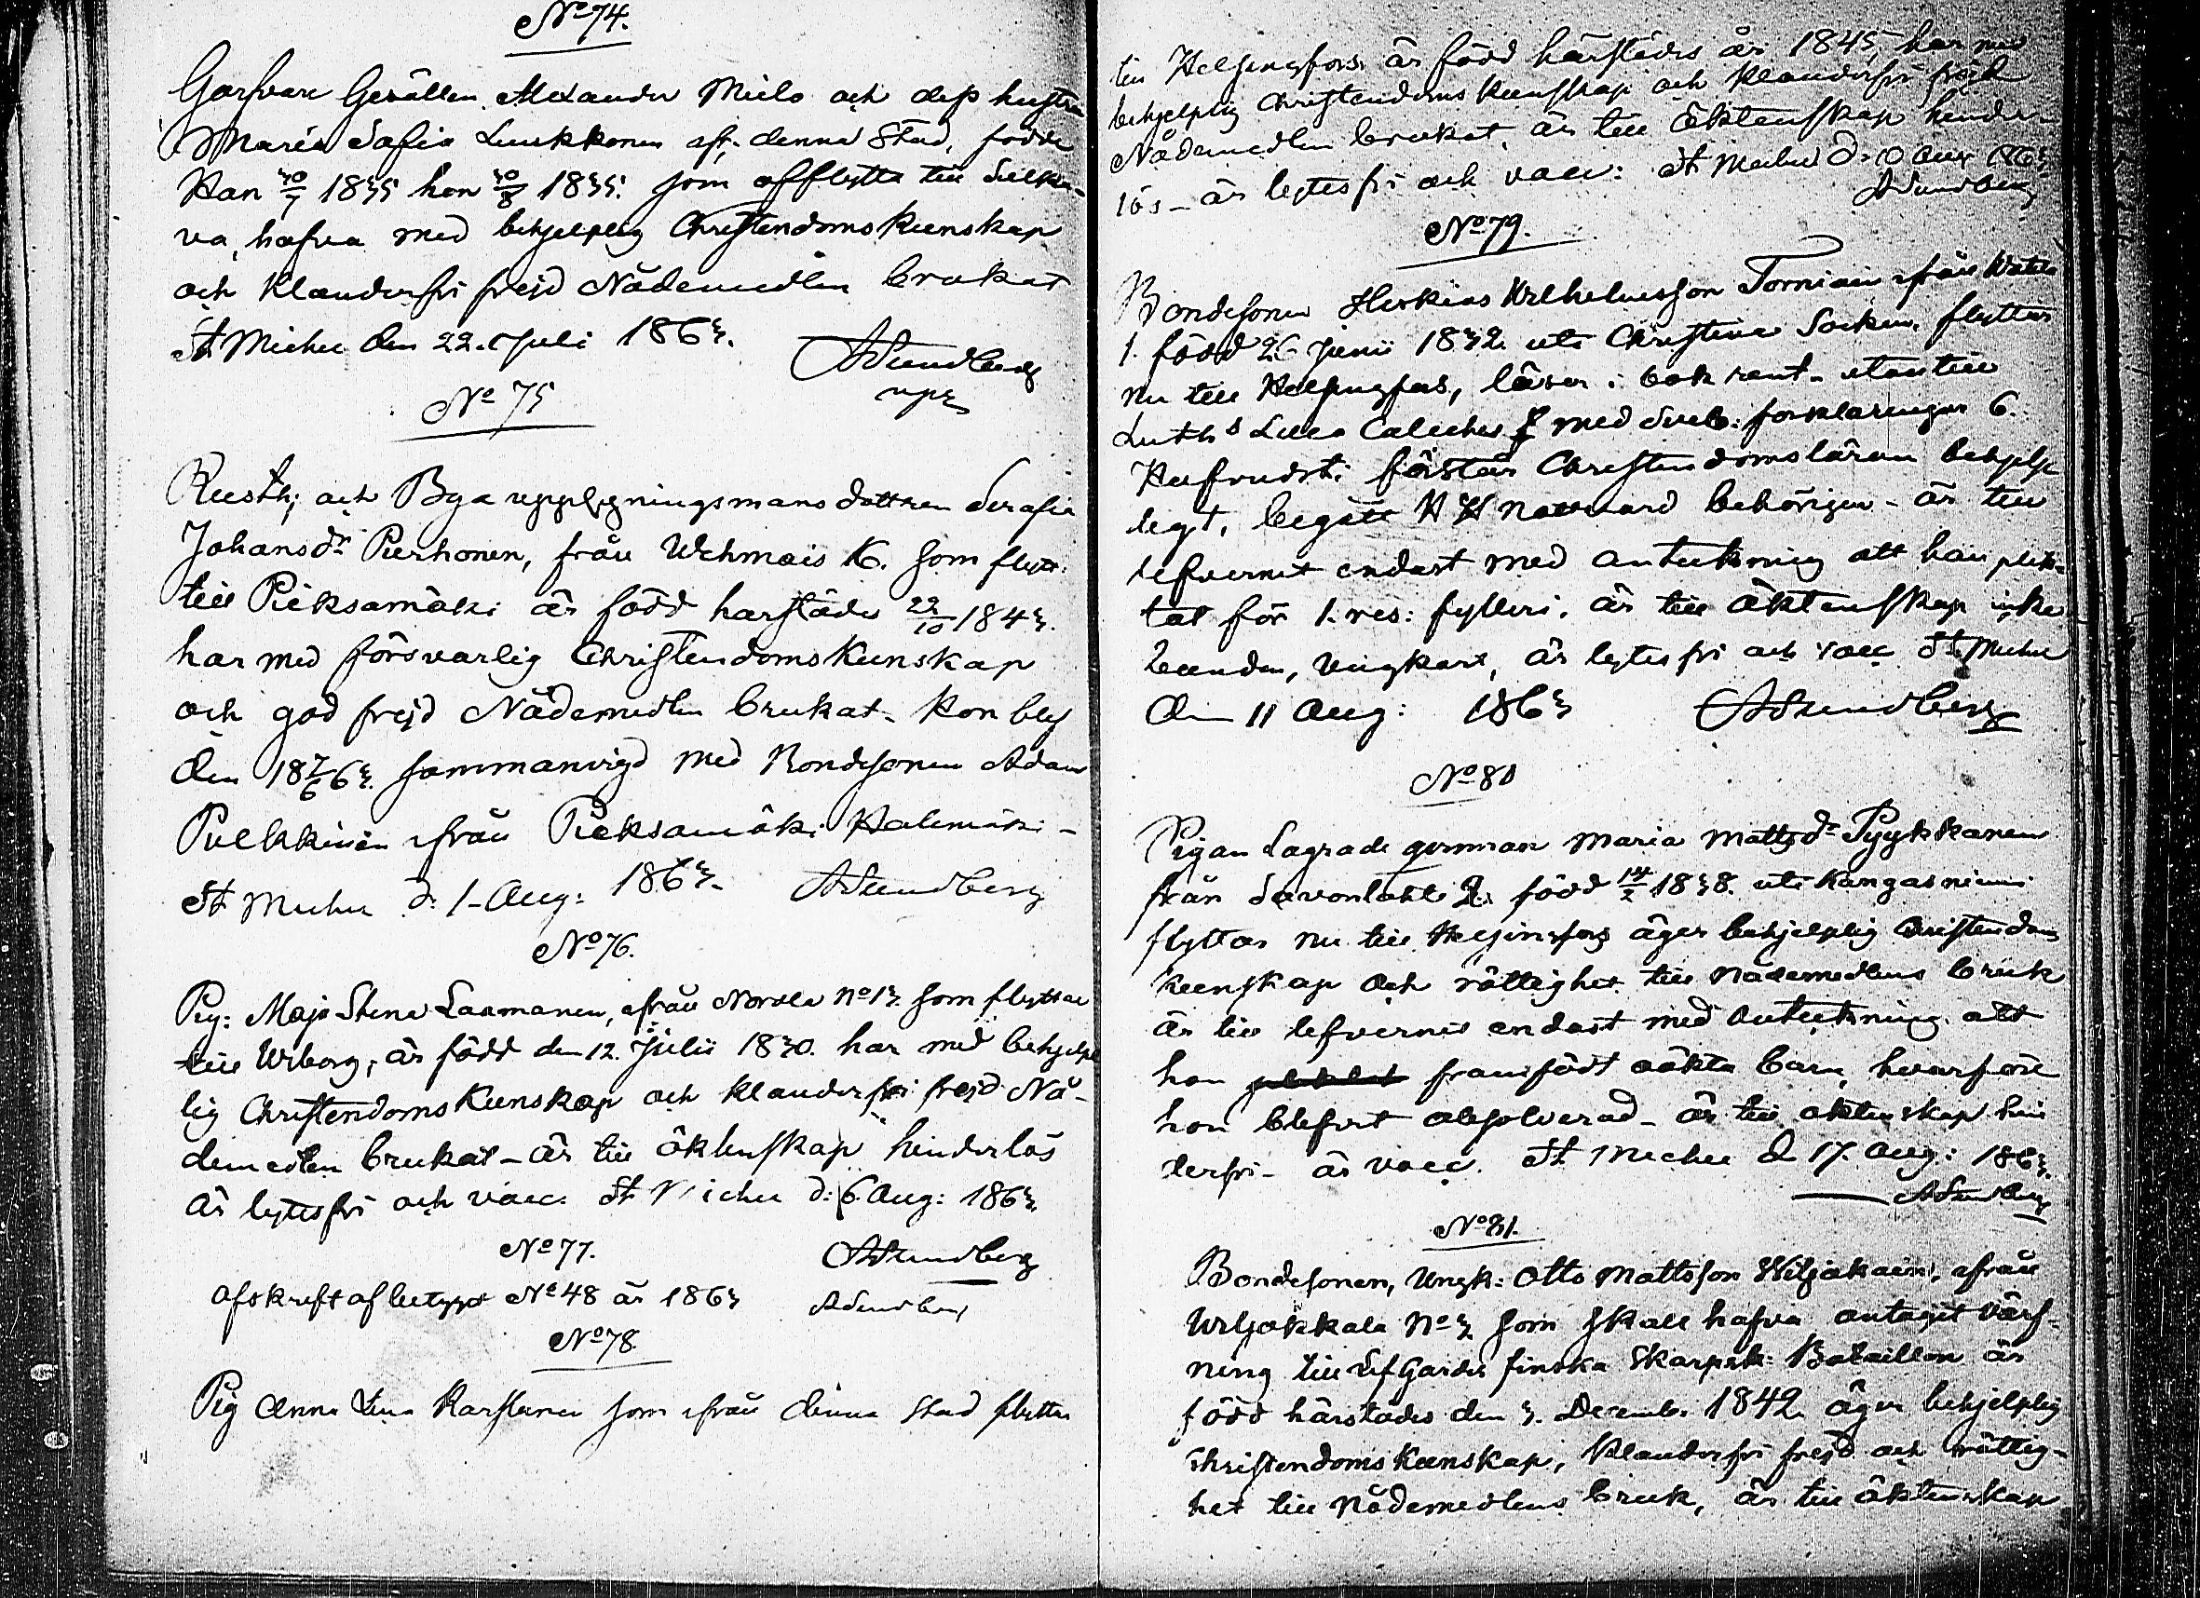 No 74.
Garfvare Gesällen Alexander Mielo och dess hustru
Maria Sofia Luukkonen afr. denna Stad, födde
Han 30/7 1835 hon 30/8 1835. som afflytta till Sulka-
va, hafva med behjelplig Christendoms kunskap
och klanderfri frejd Nådemedlen brukat
St Michel den 22. Juli 1863.
ASundberg
No 75
Rusth; och Bya uppsyningsmans dottren Serafia
Johansdr Purhonen, från Wehmais 16. som flytt:
till Pieksamäki är född härstädes 22/10 1843.
har med försvarlig Christendoms Kunskap
och god frejd Nådemedlen brukat. Hon blef
den 18 7/6 63. sammanvigd med Bondesonen Adam
Pulkkinen ifrån Pieksamäki Halimäki -
St Michel d. 1. Aug: 1863. ASundberg
No 76.
Pig: Maja Stina Laamanen, ifrån Norola No 13. som flyttar
till Wiborg, är född den 12. Julii 1830. har med behjelp
lig Christendoms Kunskap och klanderfri frejd Nå-
demedlen brukat - är till äktenskap hinderlös
är lytesfri och vacc. St Michel d: 6 Aug: 1863.
No 77. ASundberg
afskrift af betyget No 48 år 1863 ASundberg
No 78
Pig Anna Lina Karstinen som ifrån denna stad flyttar
till Helsingfors är född härstädes år 1845, har med
behjelplig Christendoms kunskap och klanderfri frejd
Nådemedlen brukat, är till äktenskap hinder-
lös - är lytesfri och vacc: St Michel d. 10 Aug 1863
ASundberg
No 79.
Bondesonen Herkius Wilhelmsson Torniain ifrån
1. född 26 Junii 1832. uti Christina Socken, flyttar
nu till Helsingfors, läser i bok rent - utantill
Luths Lilla Cateches med Sveb: förklaringar 6.
Hufvudst: förstår Christendomsläran behjelp
ligt, begått H H Nattvard behörigen - är till
lefvernet endast med anteckning att han plik-
tat för 1. res: fylleri. är till äktenskap icke
bunden, ungkarl, är lytesfri och vacc St. Michel
den 11 Aug: 1863 ASundberg
No 80
Pigan Lagrade qvinnan Maria Mattsdr Pyykkänen
från Savonlahti 2. född 14/2 1838. uti Kangasniemi
flyttar nu till Helsingfors äger behjelplig Christendoms
kunskap och rättighet till nådemedlens bruk
är till lefvernet endast med anteckning att
hon framfödt oäkta barn, hvarföre
hon blifvit absolverad - är till äktenskap hin
derfri - är vacc. St. Michel d 17. Aug: 1863.
ASundberg
No 81.
Bondesonen, Ungk: Otto Mattsson Wiljakain, ifrån
Wiljakkala No 3 som skall hafva antagit värf-
ning till Lif Gardes finska Skarpsk: Bataillon är
född härstädes den 3. December 1842. äger behjelplig
Christendoms Kunskap, klanderfri frejd och rättig-
het till nådemedlens bruk, är till äktenskap